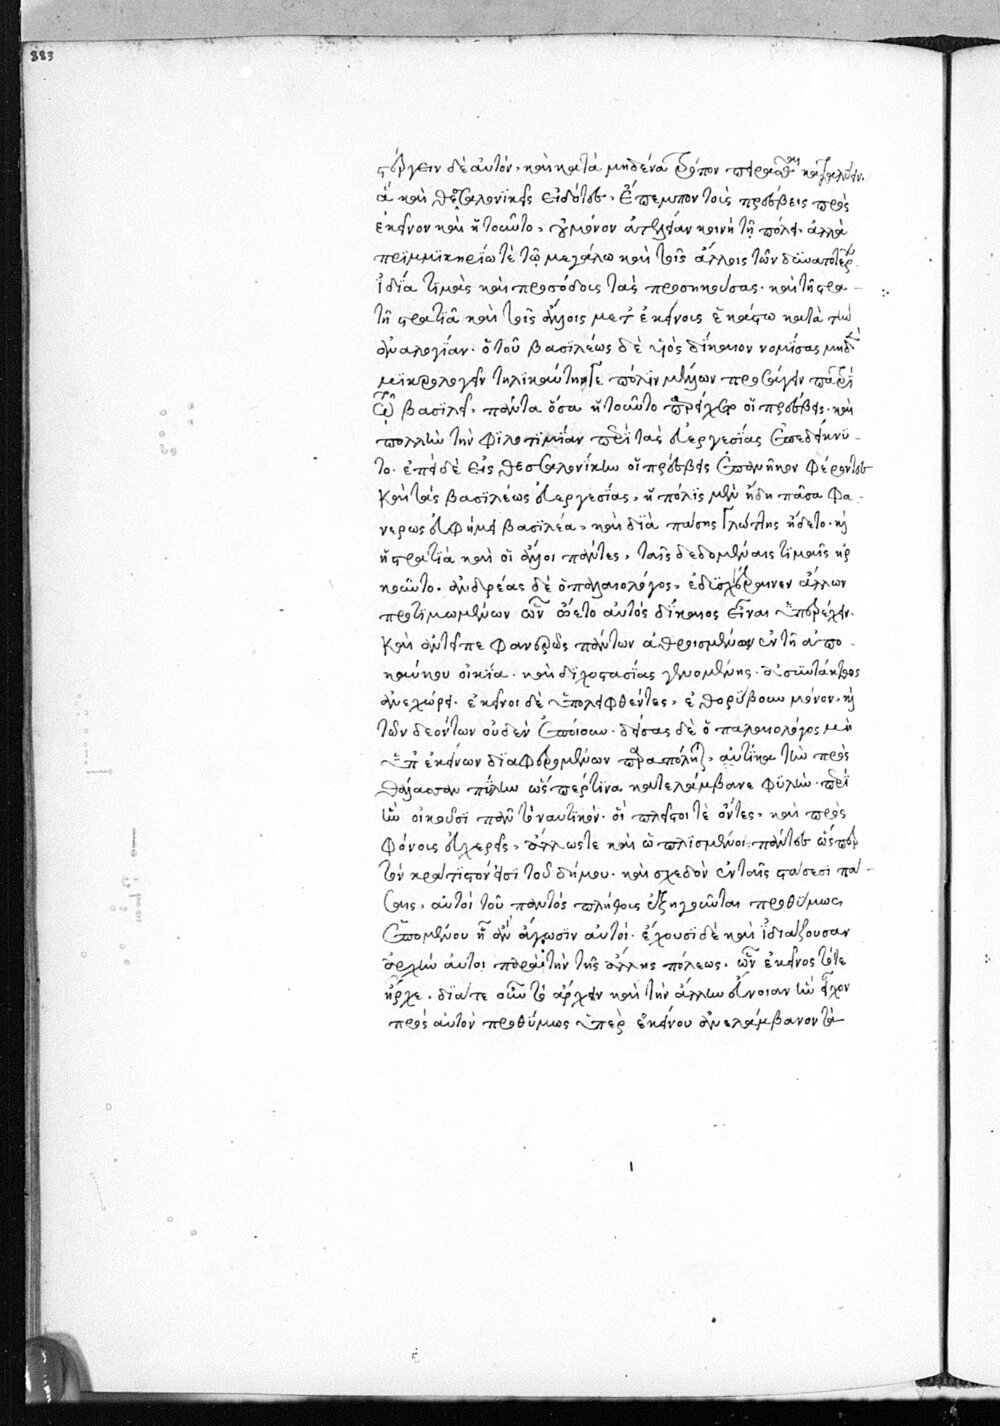 883
στέργειν δὲ αὐτὸν, καὶ κατὰ μηδένα τρόπον πειρᾶσθαι καταλύειν.
ἃ καὶ θεσσαλονικεῖς εἰδότες, ἔπεμπον τοὺς πρέσβεις πρὸς
ἐκεῖνον καὶ ᾐτοῦντο, οὐ μόνον ἀτέλειαν κοινῇ τῇ πόλει, ἀλλὰ
πριμμικηρίω τὲ τῶ μεγάλω καὶ τοῖς ἄλλοις τῶν δυνατωτέρων
ἰδία τιμὰς καὶ προσόδους τὰς προσηκούσας. καὶ τῆ στρα-
τῆ στρατιᾶ καὶ τοῖς ἄλλοις μετ' ἐκείνους ἑκάστω κατὰ τὴν
ἀναλογίαν. ὁ τοῦ βασιλέως δὲ υἱὸς δίκαιον νομίσας μηδὲ
μικρολογεῖν τηλικαύτην τε πόλιν μέλλων προσάγειν πατρὶ
τῷ βασιλεῖ, πάντα ὅσα ᾐτοῦντο παρείχετο οἱ πρέσβεις. καὶ
πολλὴν τὴν φιλοτιμίαν περὶ τὰς εὐεργεσίας ἐπεδείκνυ-
το. ἐπεὶ δὲ εἰς θεσσαλονίκην οἱ πρέσβεις ἐπανῆκον φέροντες
καὶ τὰς βασιλέως εὐεργεσίας, ἡ πόλις μὲν ἤδη πᾶσα φα-
νερῶς εὐφήμει βασιλέα, καὶ διὰ πάσης γλώττης ᾔδετο. καὶ
ἡ στρατιὰ καὶ οἱ ἄλλοι πάντες, ταῖς δεδομέναις τιμαῖς ηὐ
χοῦντο. ἀνδρέας δὲ ὁ παλαιολόγος, ἐδυσχέραινεν ἄλλων
προτιμωμένων ὧν ᾤετο αὐτὸς δίκαιος εἶναι ὑπερέχειν.
καὶ ἀντεῖπε φανερῶς πάντων ἀθροισμένων ἐν τῇ ἀπο-
καύκου οἰκία. καὶ διχοστασίας γενομένης. ἀσυντάκτως
ἀνεχώρει. ἐκεῖνοι δὲ ὑπολειφθέντες, ἐθορύβουν μόνον. καὶ
τῶν δεόντων οὐδὲν ἐποίουν. δείσας δὲ ὁ παλαιολόγος μὴ
ὑπ' ἐκείνων διαφθειρομένων παραπόληται, αὐτίκα τὴν πρὸς
θάλασσαν πύλην ὥσπερ τινα κατελάμβανε φυλήν. περὶ
ἣν οἰκοῦσι πᾶν τὸ ναυτικόν. οἳ πλεῖστοι τὲ ὄντες, καὶ πρὸς
φόνους εὐχερεῖς, ἄλλως τε καὶ ὡπλισμένοι πάντες ὥσπερ
τὸ κράτιστόν εἰσι τοῦ δήμου. καὶ σχεδὸν ἐν ταῖς στάσεσι πά-
σαις, αὐτοὶ τοῦ παντὸς πλήθους ἐξηγοῦνται προθύμως
ἑπομένου ᾗ ἂν ἄγωσιν αὐτοί. ἔχουσι δὲ καὶ ἰδιάζουσαν
ἀρχὴν αὐτοὶ παρὰ τὴν τῆς ἄλλης πόλεως. ὧν ἐκεῖνος τότε
ἦρχε. διά τε οὖν τὸ ἄρχειν καὶ τὴν ἄλλην εὔνοιαν ἣν εἶχον
πρὸς αὐτὸν προθύμως ὑπὲρ ἐκείνου ἀνελάμβανον τὰ